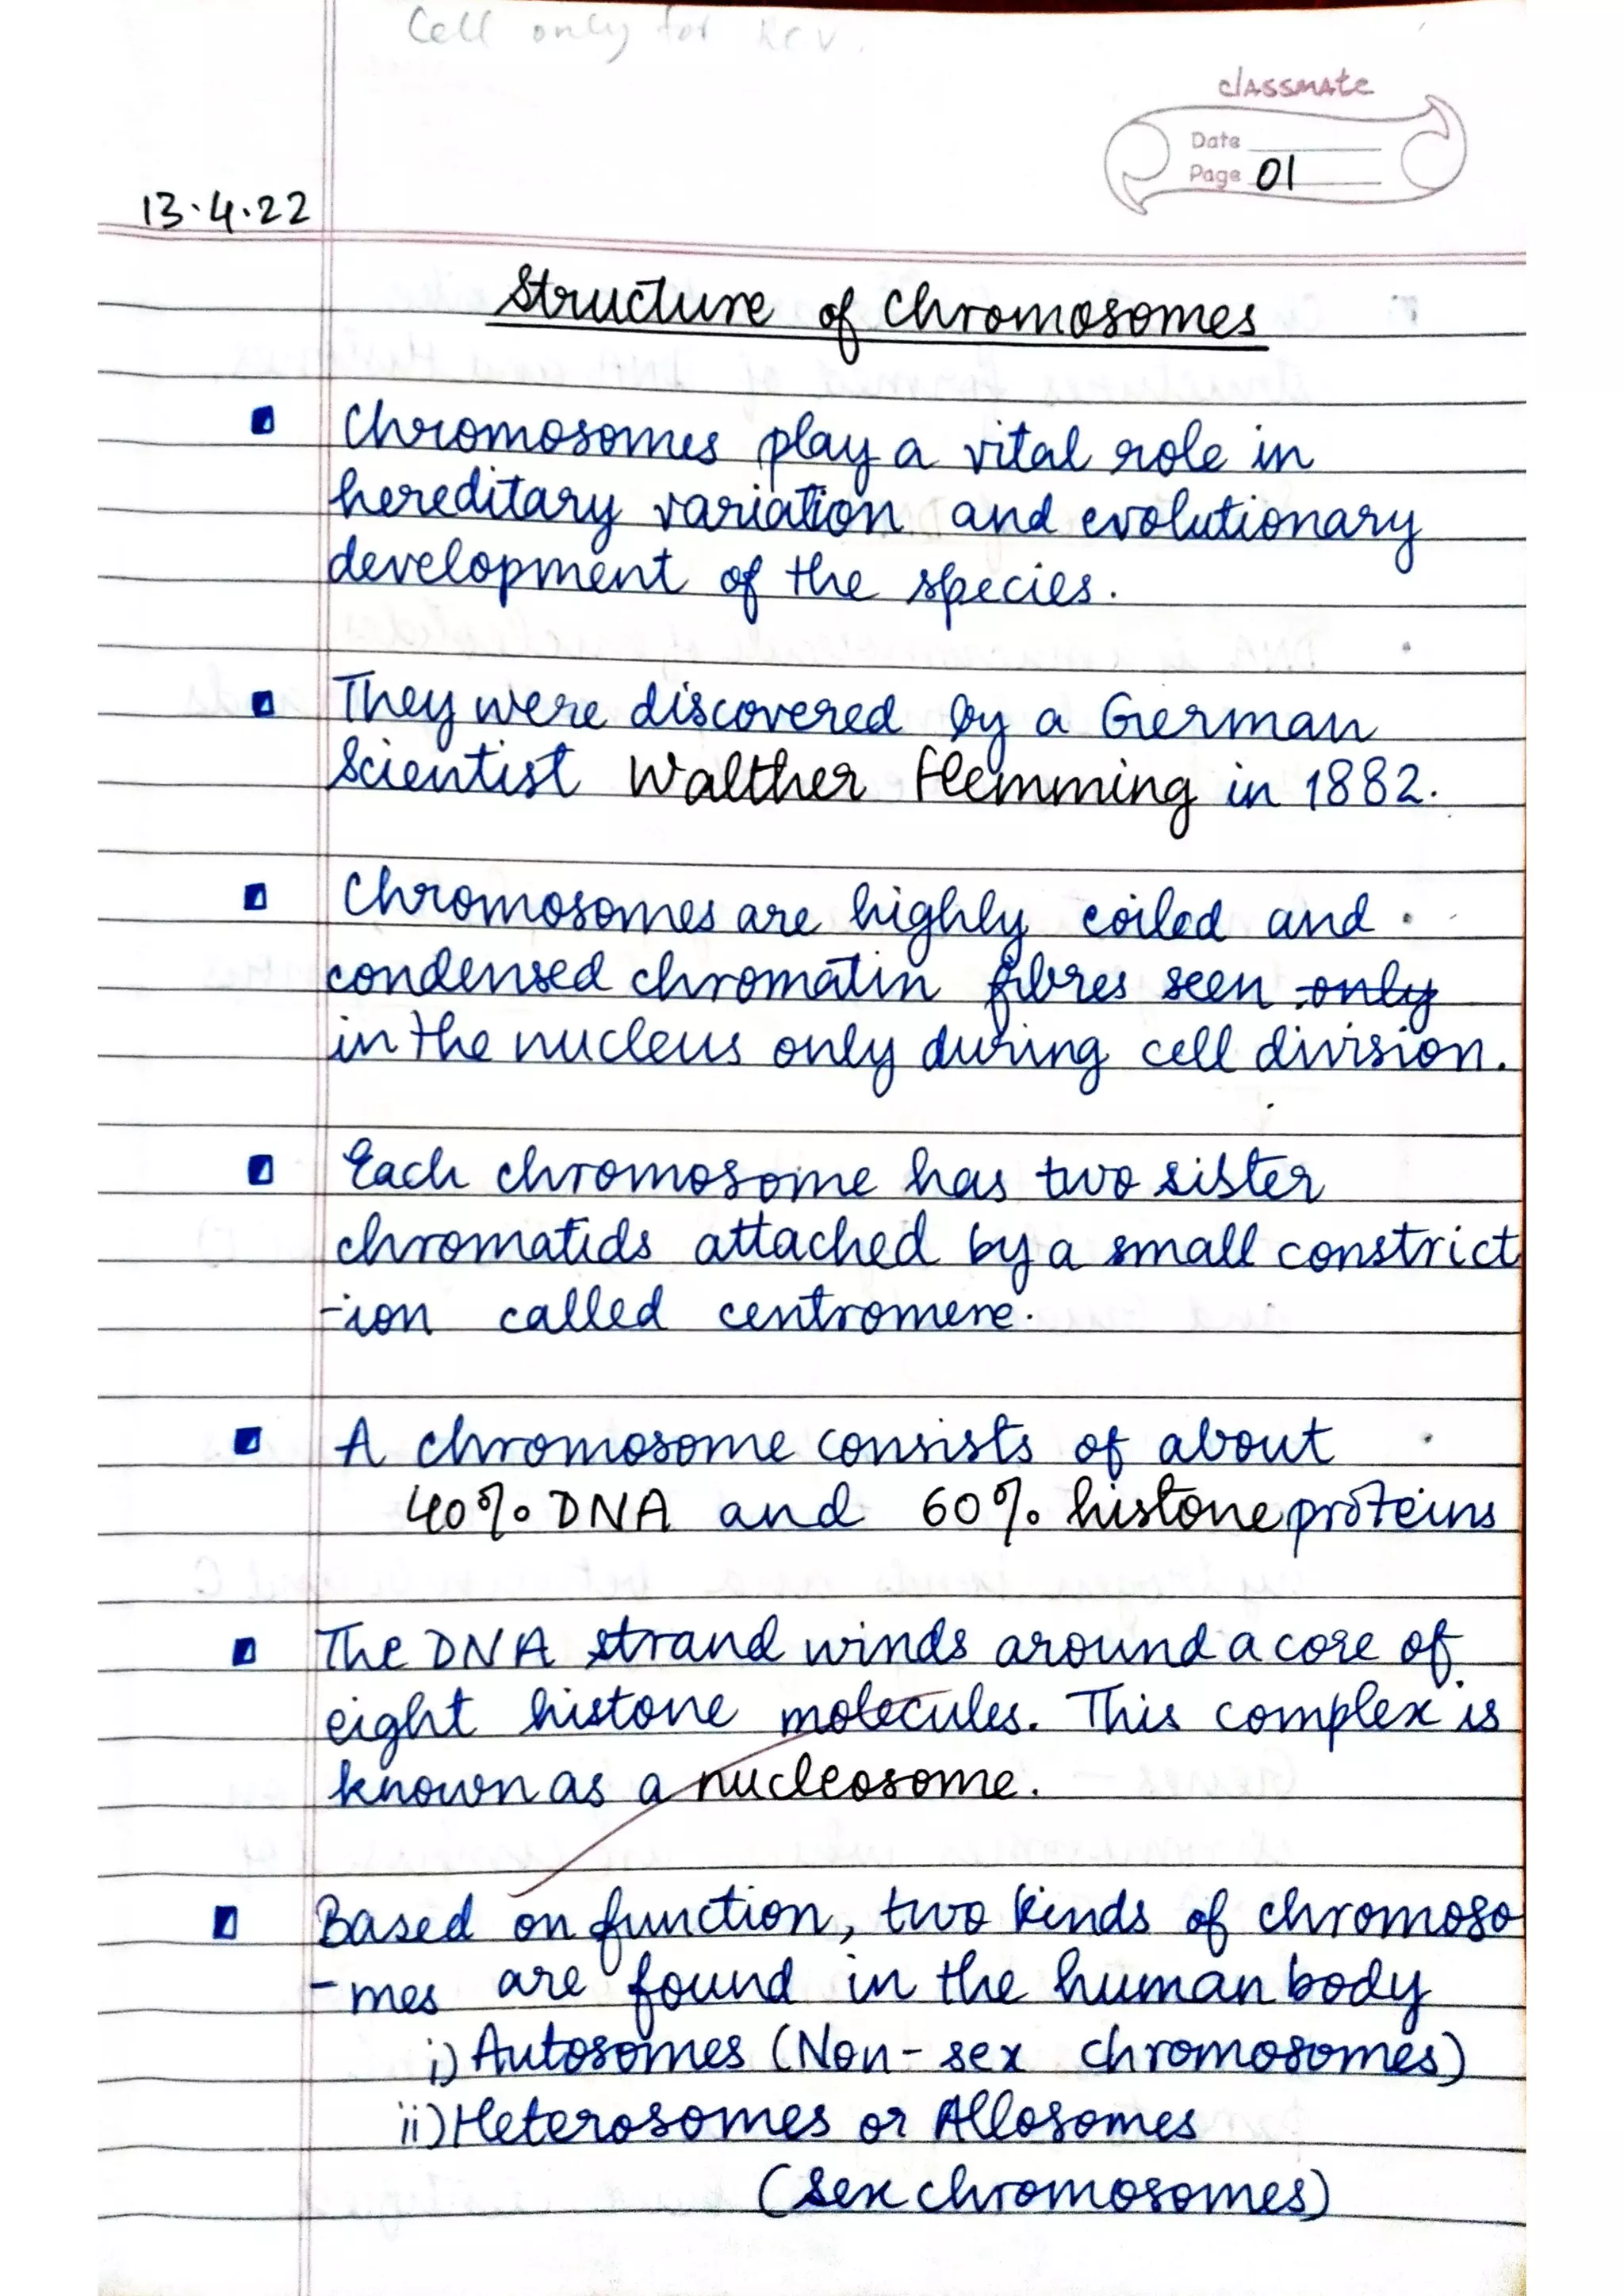 Cell only for
classmate
Date
Page 01
13.4.22
Structure of Chromosomes
Chromosomes play a vital role in
hereditary variation and evolutionary
development of the species.
They were discovered by a German
Scientist Walther Flemming in 1882.
Chromosomes are highly coiled and
condensed chromatin fibres seen only
in the nucleus only during cell division.
Each chromosome has two sister
chromatids attached by a small constrict
-ion called centromere.
A chromosome consists of about
40% DNA and 60% histone proteins
The DNA strand winds around a core of
eight histone molecules. This complex is
known as a nucleosome.
Based on function, two kinds of chromoso
-mes are found in the human body
i) Autosomes (Non-sex chromosomes)
ii) Heterosomes or Allosomes
(Sex chromosomes)